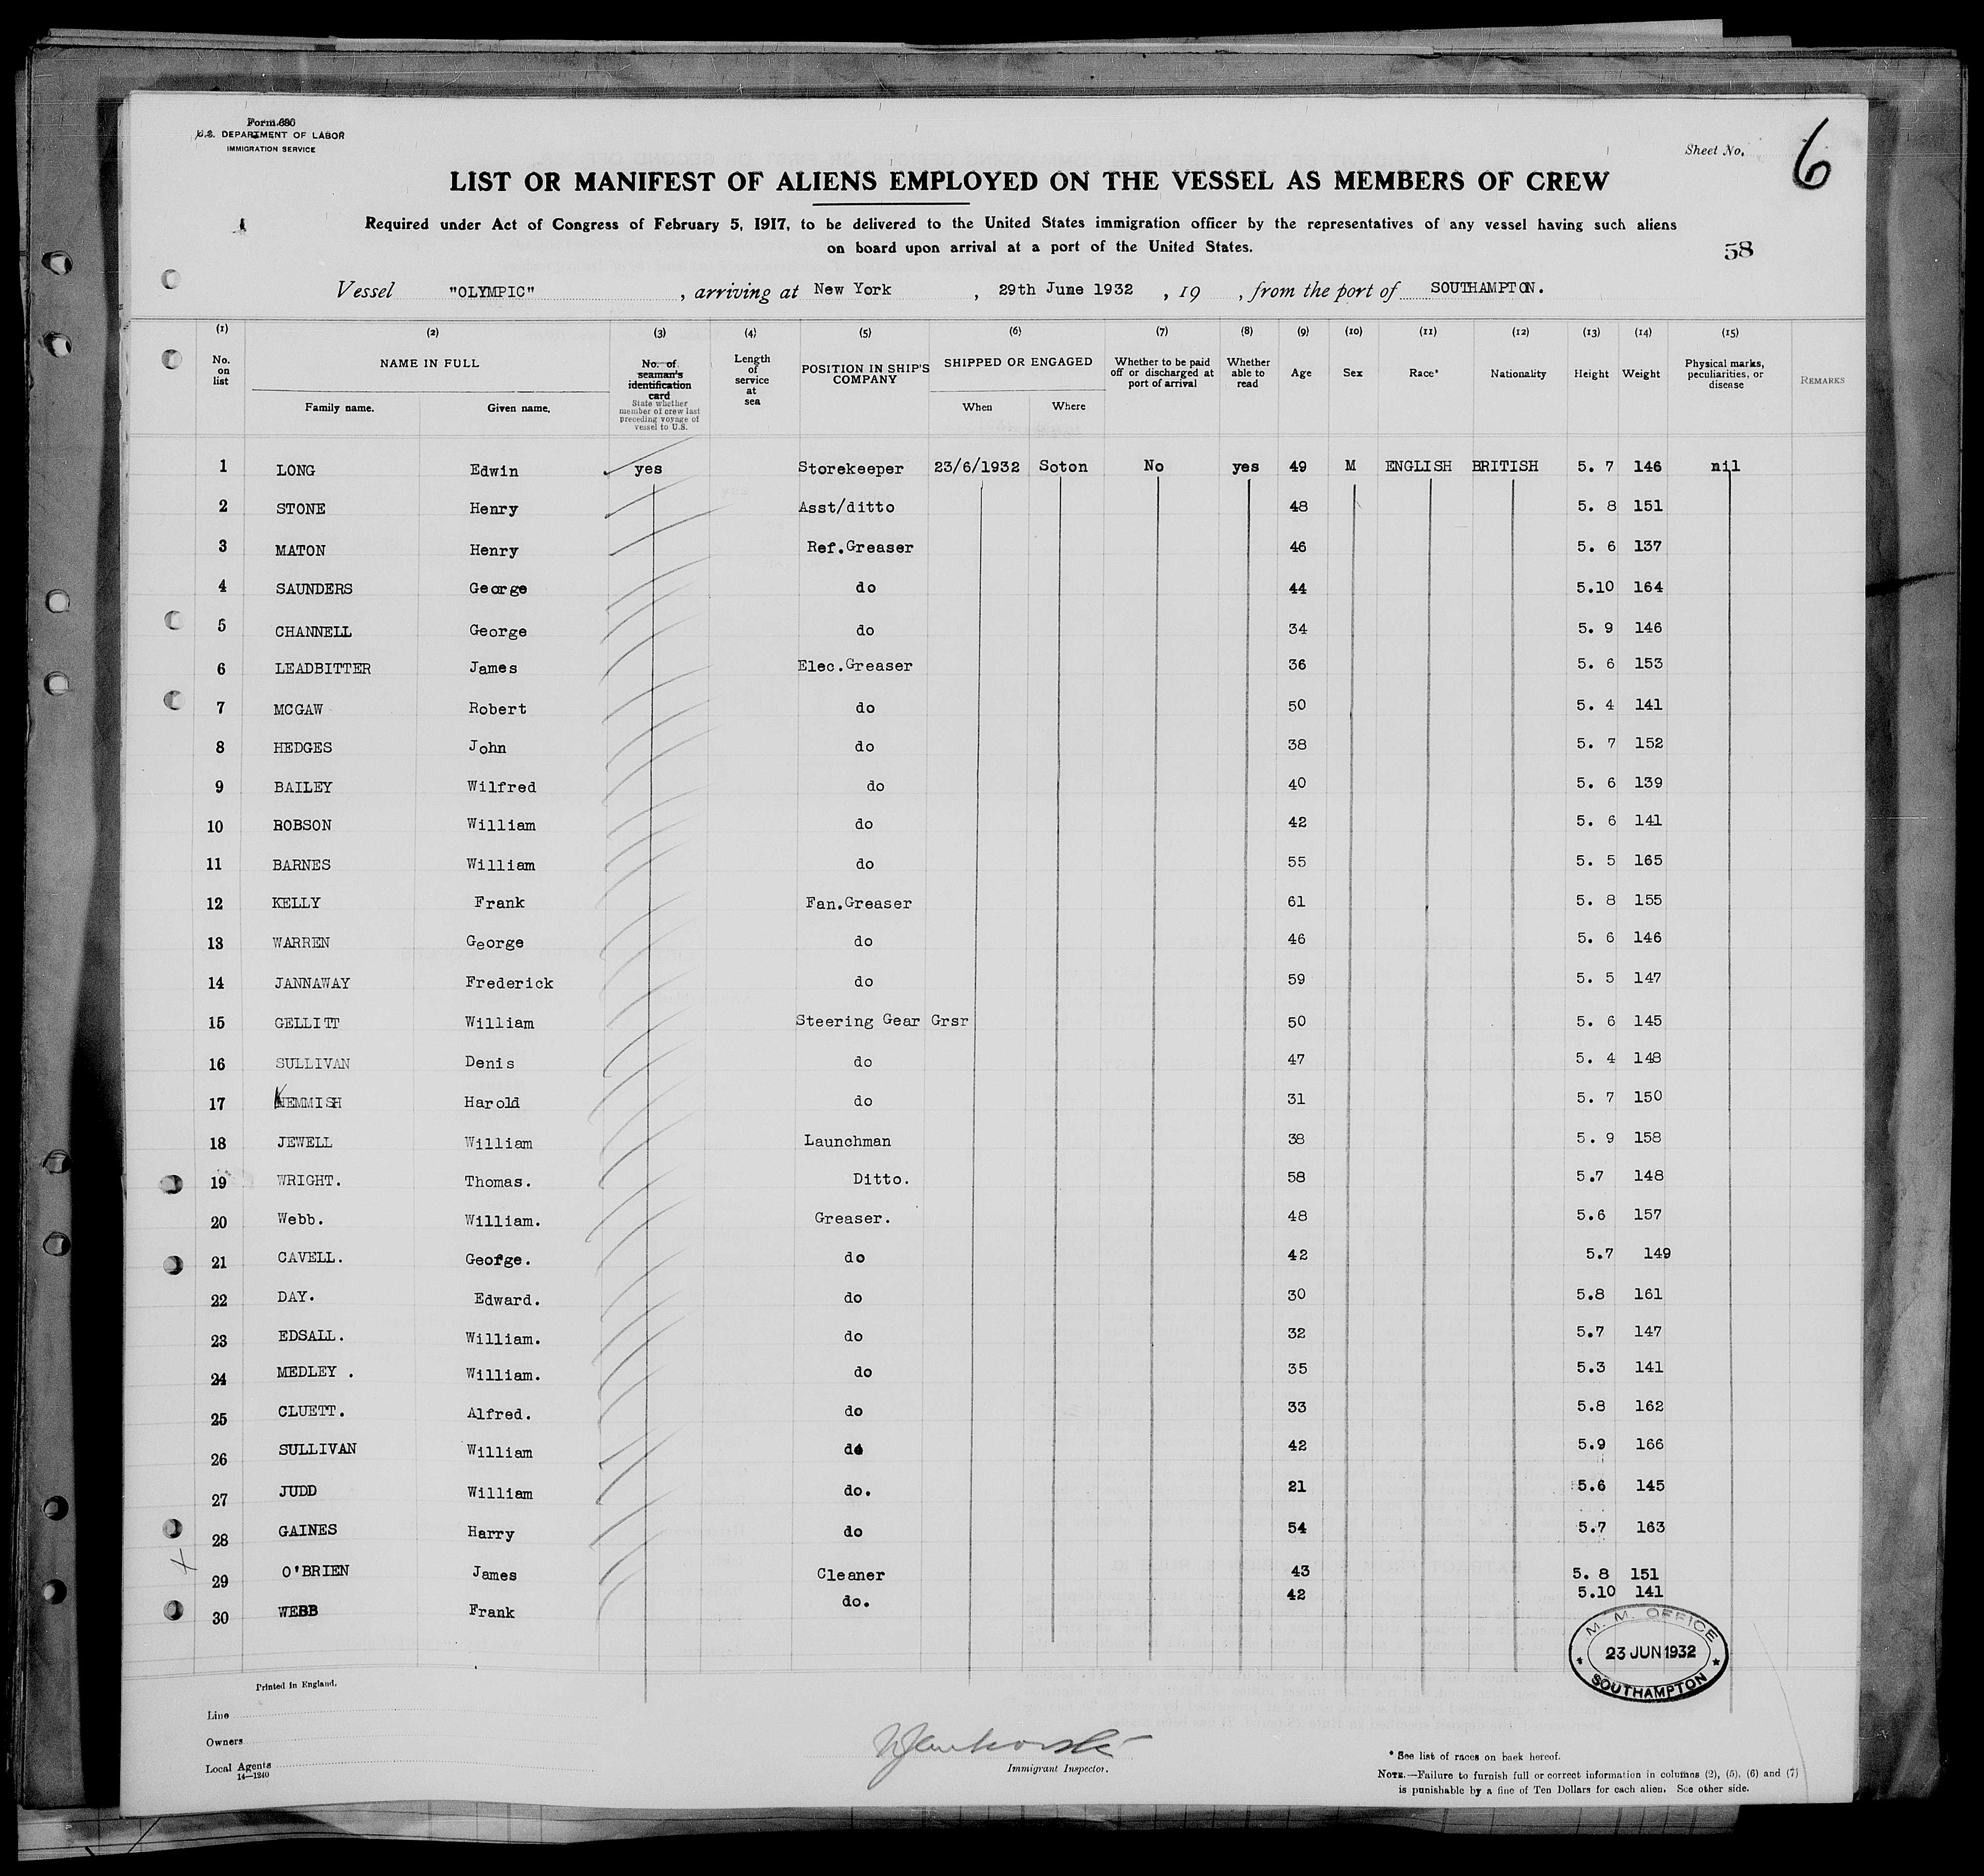 Form 680
U.S. DEPARTMENT OF LABOR
IMMIGRATION SERVICE
Sheet No. 6
LIST OR MANIFEST OF ALIENS EMPLOYED ON THE VESSEL AS MEMBERS OF CREW
Required under Act of Congress of February 5, 1917, to be delivered to the United States immigration officer by the representatives of any vessel having such aliens
on board upon arrival at a port of the United States.
58
Vessel "OLYMPIC" , arriving at New York , 29th June 1932 , 19 , from the port of SOUTHAMPTON.
(1) (2) (3) (4) (5) (6) (7) (8) (9) (10) (11) (12) (13) (14) (15)
No. on list
NAME IN FULL
Family name. Given name.
No. of seaman's identification card
State whether member of crew last preceding voyage of vessel to U.S.
Length of service at sea
POSITION IN SHIP'S COMPANY
SHIPPED OR ENGAGED
When Where
Whether to be paid off or discharged at port of arrival
Whether able to read
Age
Sex
Race*
Nationality
Height
Weight
Physical marks, peculiarities, or disease
REMARKS
1 LONG Edwin yes Storekeeper 23/6/1932 Soton No yes 49 M ENGLISH BRITISH 5. 7 146 nil
2 STONE Henry Asst/ditto 48 5. 8 151
3 MATON Henry Ref.Greaser 46 5. 6 137
4 SAUNDERS George do 44 5.10 164
5 CHANNELL George do 34 5. 9 146
6 LEADBITTER James Elec.Greaser 36 5. 6 153
7 MCGAW Robert do 50 5. 4 141
8 HEDGES John do 38 5. 7 152
9 BAILEY Wilfred do 40 5. 6 139
10 ROBSON William do 42 5. 6 141
11 BARNES William do 55 5. 5 165
12 KELLY Frank Fan.Greaser 61 5. 8 155
13 WARREN George do 46 5. 6 146
14 JANNAWAY Frederick do 59 5. 5 147
15 GELLITT William Steering Gear Grsr 50 5. 6 145
16 SULLIVAN Denis do 47 5. 4 148
17 KEMMISH Harold do 31 5. 7 150
18 JEWELL William Launchman 38 5. 9 158
19 WRIGHT. Thomas. Ditto. 58 5.7 148
20 Webb. William. Greaser. 48 5.6 157
21 CAVELL. George. do 42 5.7 149
22 DAY. Edward. do 30 5.8 161
23 EDSALL. William. do 32 5.7 147
24 MEDLEY . William. do 35 5.3 141
25 CLUETT. Alfred. do 33 5.8 162
26 SULLIVAN William do 42 5.9 166
27 JUDD William do. 21 5.6 145
28 GAINES Harry do 54 5.7 163
29 O'BRIEN James Cleaner 43 5. 8 151
30 WEBB Frank do. 42 5.10 141
M. M. OFFICE
23 JUN 1932
SOUTHAMPTON
Printed in England.
Line
Owners
Local Agents
14—1240
Immigrant Inspector.
* See list of races on back hereof.
NOTE.—Failure to furnish full or correct information in columns (2), (5), (6) and (7)
is punishable by a fine of Ten Dollars for each alien. See other side.